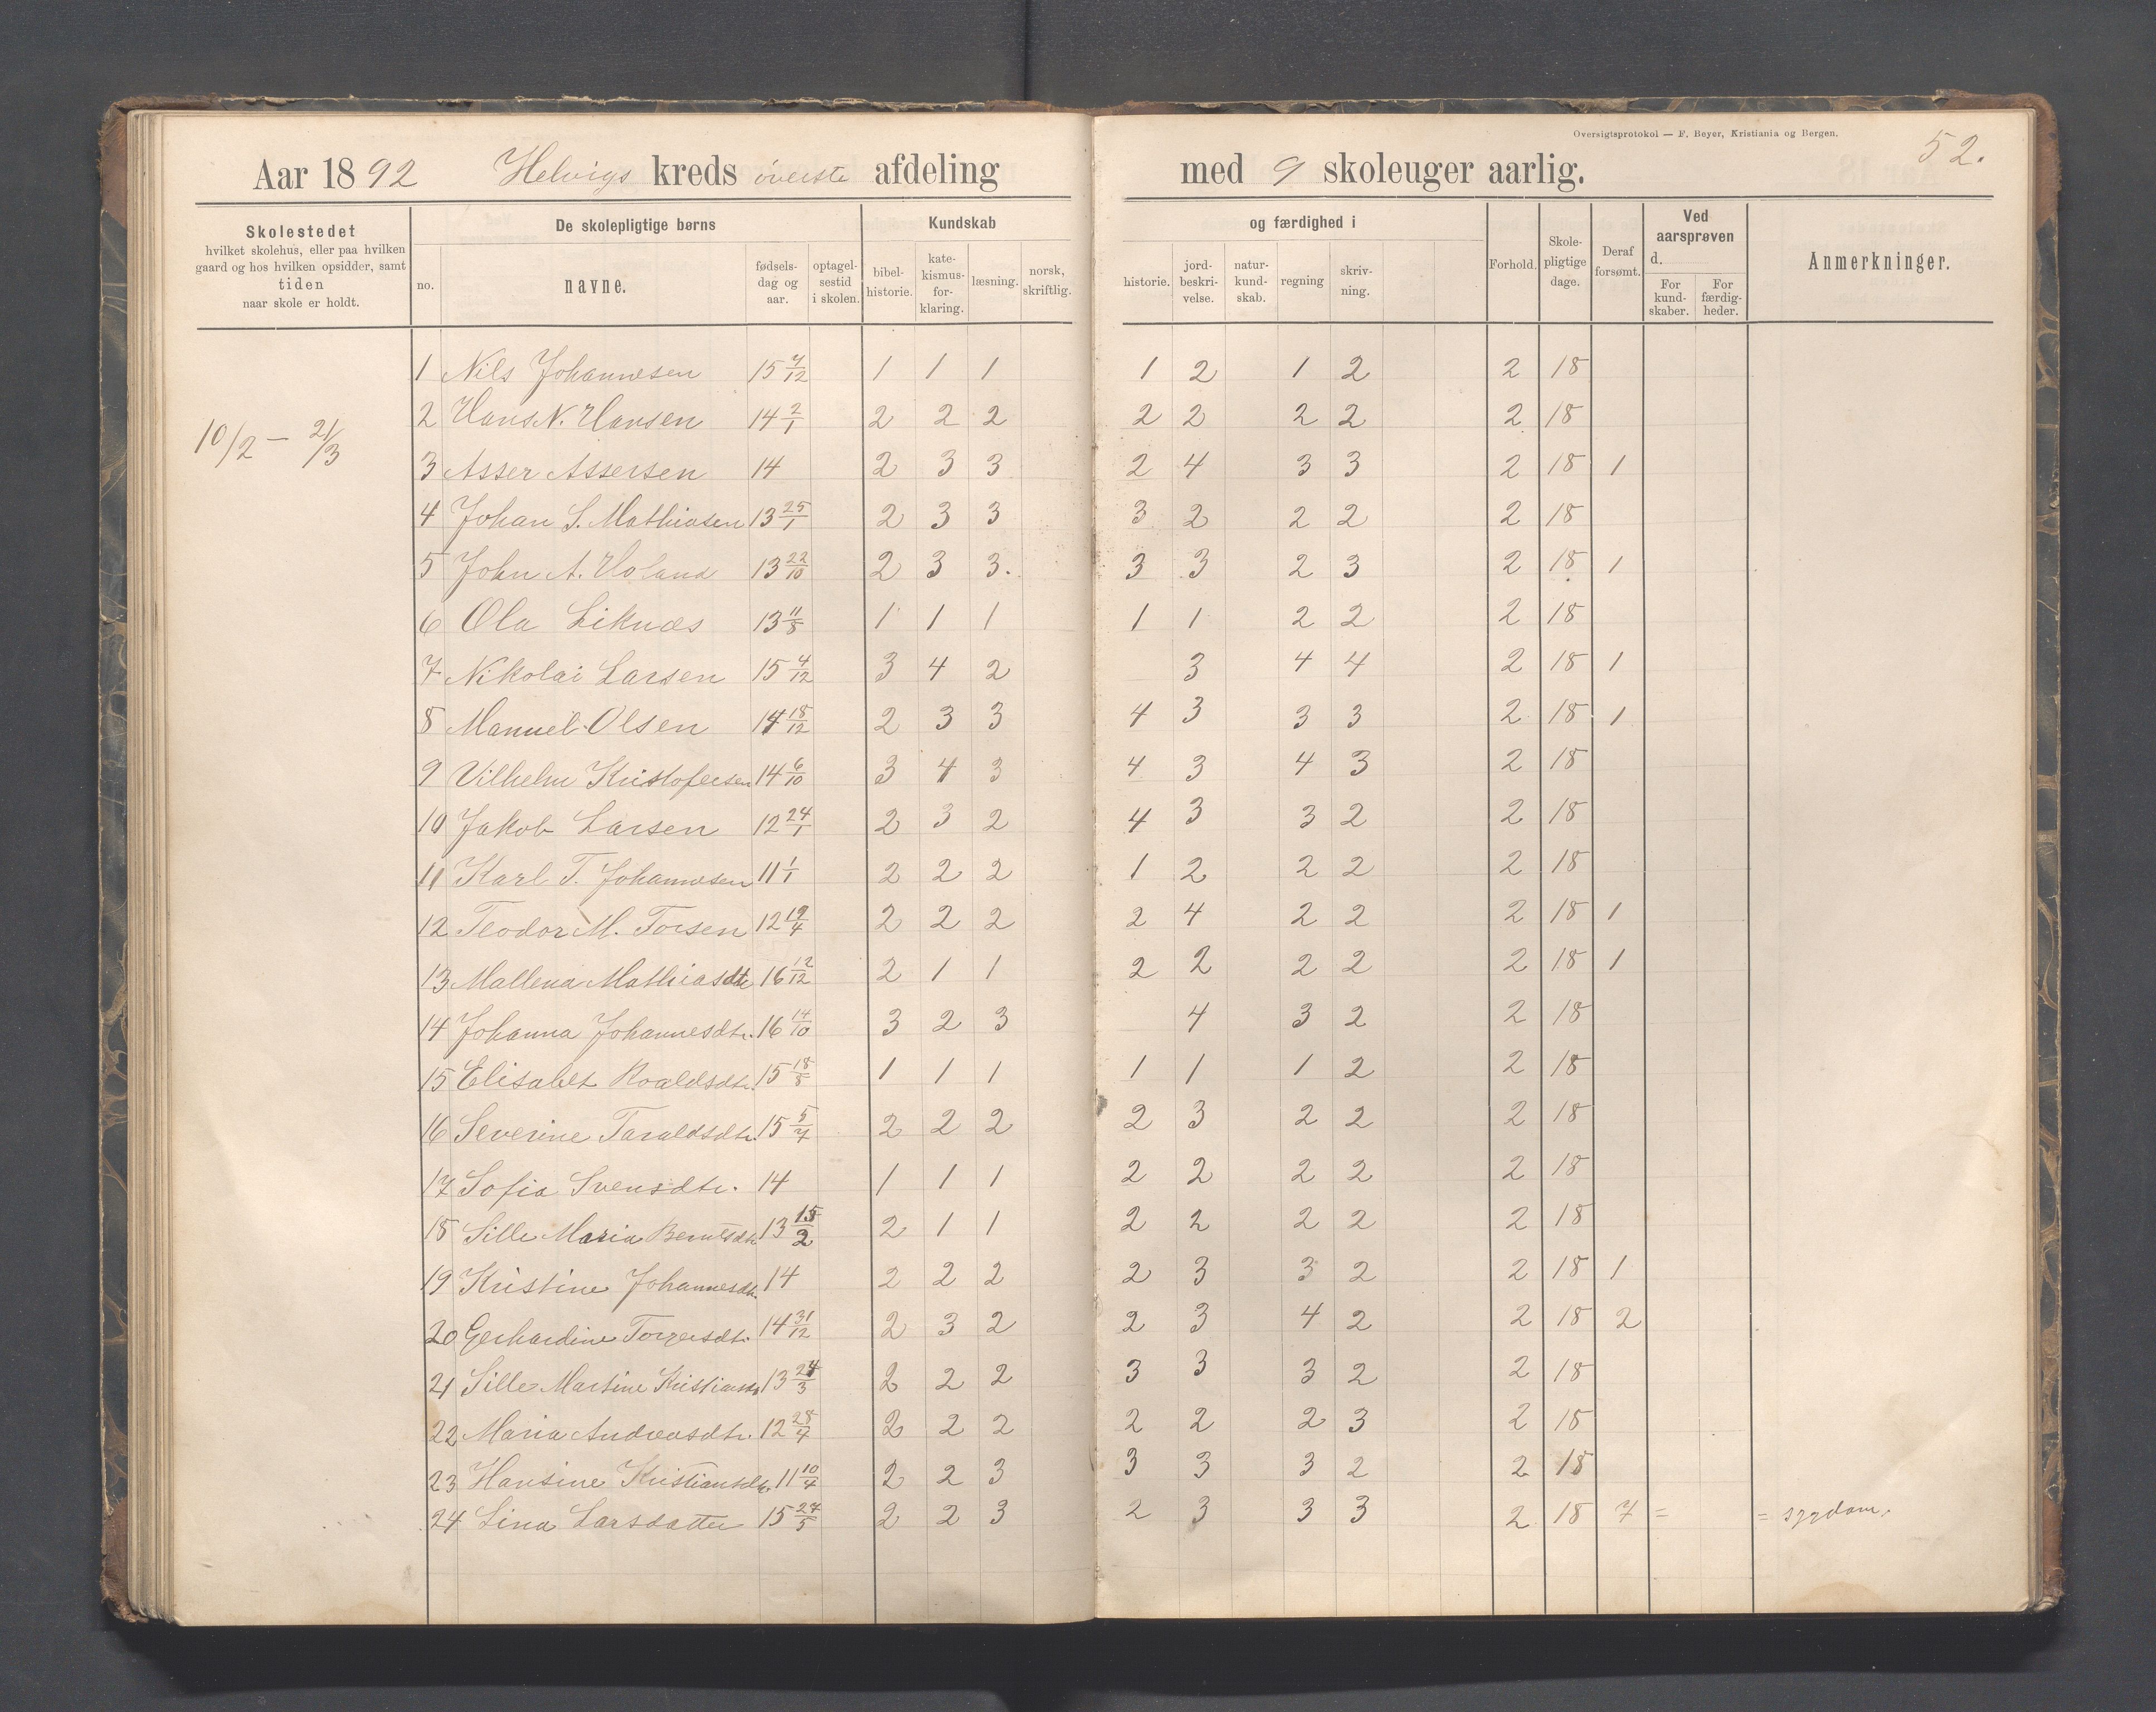 Oversigtsprotokol — F. Beyer, Kristiania og Bergen.
52.
Aar 1892 Helvigs kreds øverste afdeling med 9 skoleuger aarlig.
Skolestedet hvilket skolehus, eller paa hvilken gaard og hos hvilken opsidder, samt tiden naar skole er holdt.
De skolepligtige børns
no. navne. fødsels-dag og aar. optagel-sestid i skolen.
Kundskab og færdighed i
bibel-historie. kate-kismus-for-klaring. læsning. norsk, skriftlig. historie. jord-beskri-velse. natur-kund-skab. regning skriv-ning.
Forhold. Skole-pligtige dage. Deraf forsømt.
Ved aarsprøven d.
For kund-skaber. For færdig-heder.
Anmerkninger.
10/2 — 21/3
1 Nils Johannesen 15 7/12 1 1 1 1 2 1 2 2 18
2 Hans N. Hansen 14 2/1 2 2 2 2 2 2 2 2 18
3 Asser Assersen 14 2 3 3 2 4 3 3 2 18 1
4 Johan S. Mathiasen 13 25/1 2 3 3 3 2 2 2 2 18
5 John A. Holand 13 22/10 2 3 3. 3 3 2 3 2 18 1
6 Ola Liknæs 13 11/8 1 1 1 1 1 2 2 2 18
7 Nikolai Larsen 15 4/12 3 4 2 3 4 4 2 18 1
8 Manuel Olsen 14 18/12 2 3 3 4 3 3 3 2 18 1
9 Vilhelm Kristofersen 14 6/10 3 4 3 4 3 4 3 2 18
10 Jakob Larsen 12 24/1 2 3 2 4 3 3 2 2 18
11 Karl T. Johannesen 11 1/1 2 2 2 1 2 2 2 2 18
12 Teodor M. Torsen 12 19/4 2 2 2 2 4 2 2 2 18 1
13 Mallena Mathiasdtr 16 12/12 2 1 1 2 2 2 2 2 18 1
14 Johanna Johannesdtr. 16 14/10 3 2 3 4 3 2 2 18
15 Elisabet Roaldsdtr. 15 18/8 1 1 1 1 1 1 2 2 18
16 Severine Taraldsdtr. 15 5/7 2 2 2 2 3 2 2 2 18
17 Sofia Svensdtr. 14 1 1 1 2 2 2 2 2 18
18 Sille Maria Berntsdtr 13 15/2 2 1 1 2 2 2 2 2 18
19 Kristine Johannesdtr. 14 2 2 2 2 3 3 2 2 18 1
20 Gerhardine Torgersdtr. 14 31/12 2 3 2 2 3 4 2 2 18 2
21 Sille Martine Kristiansdtr 13 24/3 2 2 2 3 3 3 2 2 18
22 Maria Andreasdtr. 12 28/7 2 2 2 2 2 2 3 2 18
23 Hansine Kristiansdtr. 11 10/4 2 2 3 3 3 3 2 2 18
24 Lina Larsdatter 15 27/5 2 2 3 2 3 3 3 2 18 7 = = sygdom.